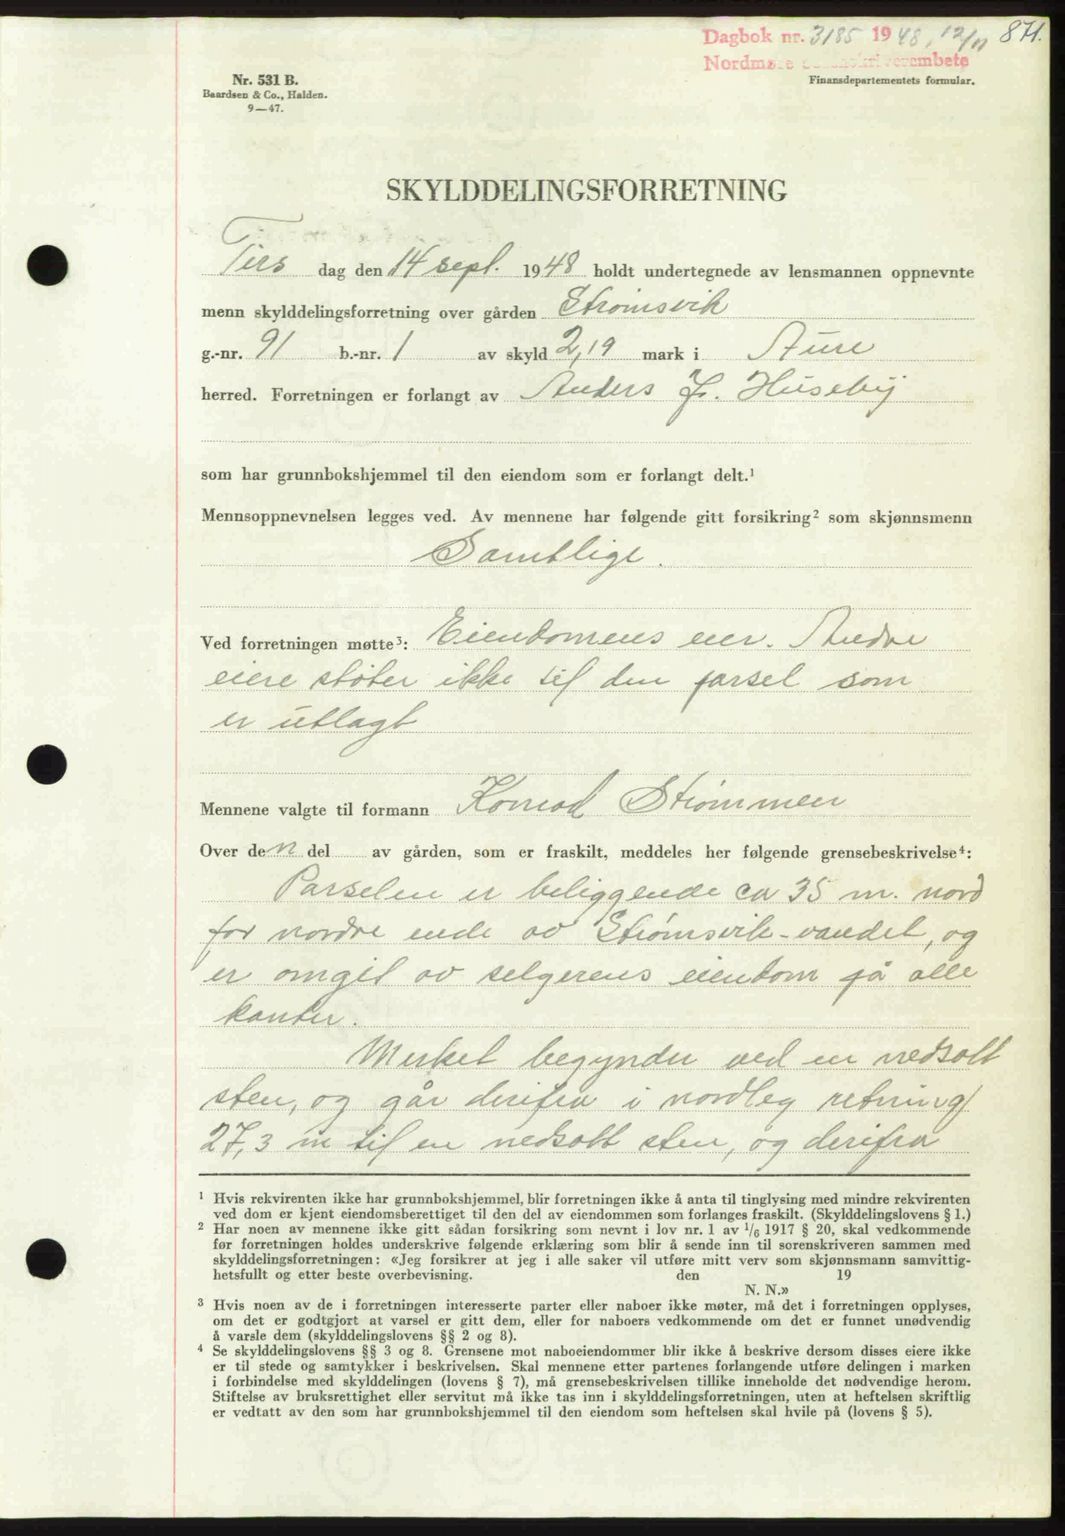 Dagbok nr. 3185 1948, 12/11 871.
Nordmøre sorenskriverembete
Nr. 531 B.
Baardsen & Co., Halden.
9—47.
Finansdepartementets formular.
SKYLDDELINGSFORRETNING
Tirs dag den 14 sept. 1948 holdt undertegnede av lensmannen oppnevnte
menn skylddelingsforretning over gården Strømsvik
g.-nr. 91 b.-nr. 1 av skyld 2,19 mark i Aure
herred. Forretningen er forlangt av Anders J. Huseby
som har grunnbokshjemmel til den eiendom som er forlangt delt.¹
Mennsoppnevnelsen legges ved. Av mennene har følgende gitt forsikring² som skjønnsmenn
Samtlige.
Ved forretningen møtte³: Eiendomens eier. Andre
eiere støter ikke til den parsel som
er utlagt
Mennene valgte til formann Konrad Strømmen
Over den del av gården, som er fraskilt, meddeles her følgende grensebeskrivelse⁴:
Parselen er beliggende ca 35 m. nord
for nordre ende av Strømsvik-vandet, og
er omgit av selgerens eiendom på alle
kanter.
Merket begynder ved en nedsatt
sten, og går derifra i nordleg retning
27,3 m til en nedsatt sten, og derifra
¹ Hvis rekvirenten ikke har grunnbokshjemmel, blir forretningen ikke å anta til tinglysing med mindre rekvirenten
ved dom er kjent eiendomsberettiget til den del av eiendommen som forlanges fraskilt. (Skylddelingslovens § 1.)
² Har noen av mennene ikke gitt sådan forsikring som nevnt i lov nr. 1 av 1/6 1917 § 20, skal vedkommende
før forretningen holdes underskrive følgende erklæring som blir å sende inn til sorenskriveren sammen med
skylddelingsforretningen: «Jeg forsikrer at jeg i alle saker vil utføre mitt verv som skjønnsmann samvittig-
hetsfullt og etter beste overbevisning. den 19
N. N.»
³ Hvis noen av de i forretningen interesserte parter eller naboer ikke møter, må det i forretningen opplyses,
om det er godtgjort at varsel er gitt dem, eller for naboers vedkommende om det er funnet unødvendig
å varsle dem (skylddelingslovens §§ 2 og 8).
⁴ Se skylddelingslovens §§ 3 og 8. Grensene mot naboeiendommer blir ikke å beskrive dersom disses eiere ikke
er til stede og samtykker i beskrivelsen. Skal mennene etter partenes forlangende utføre delingen i marken
i forbindelse med skylddelingen (lovens § 7), må grensebeskrivelsen tillike inneholde det nødvendige herom.
Stiftelse av bruksrettighet eller servitut må ikke tas inn i skylddelingsforretningen, uten at heftelsen skriftlig
er vedtatt av den som har grunnbokshjemmel til den eiendom som heftelsen skal hvile på (lovens § 5).